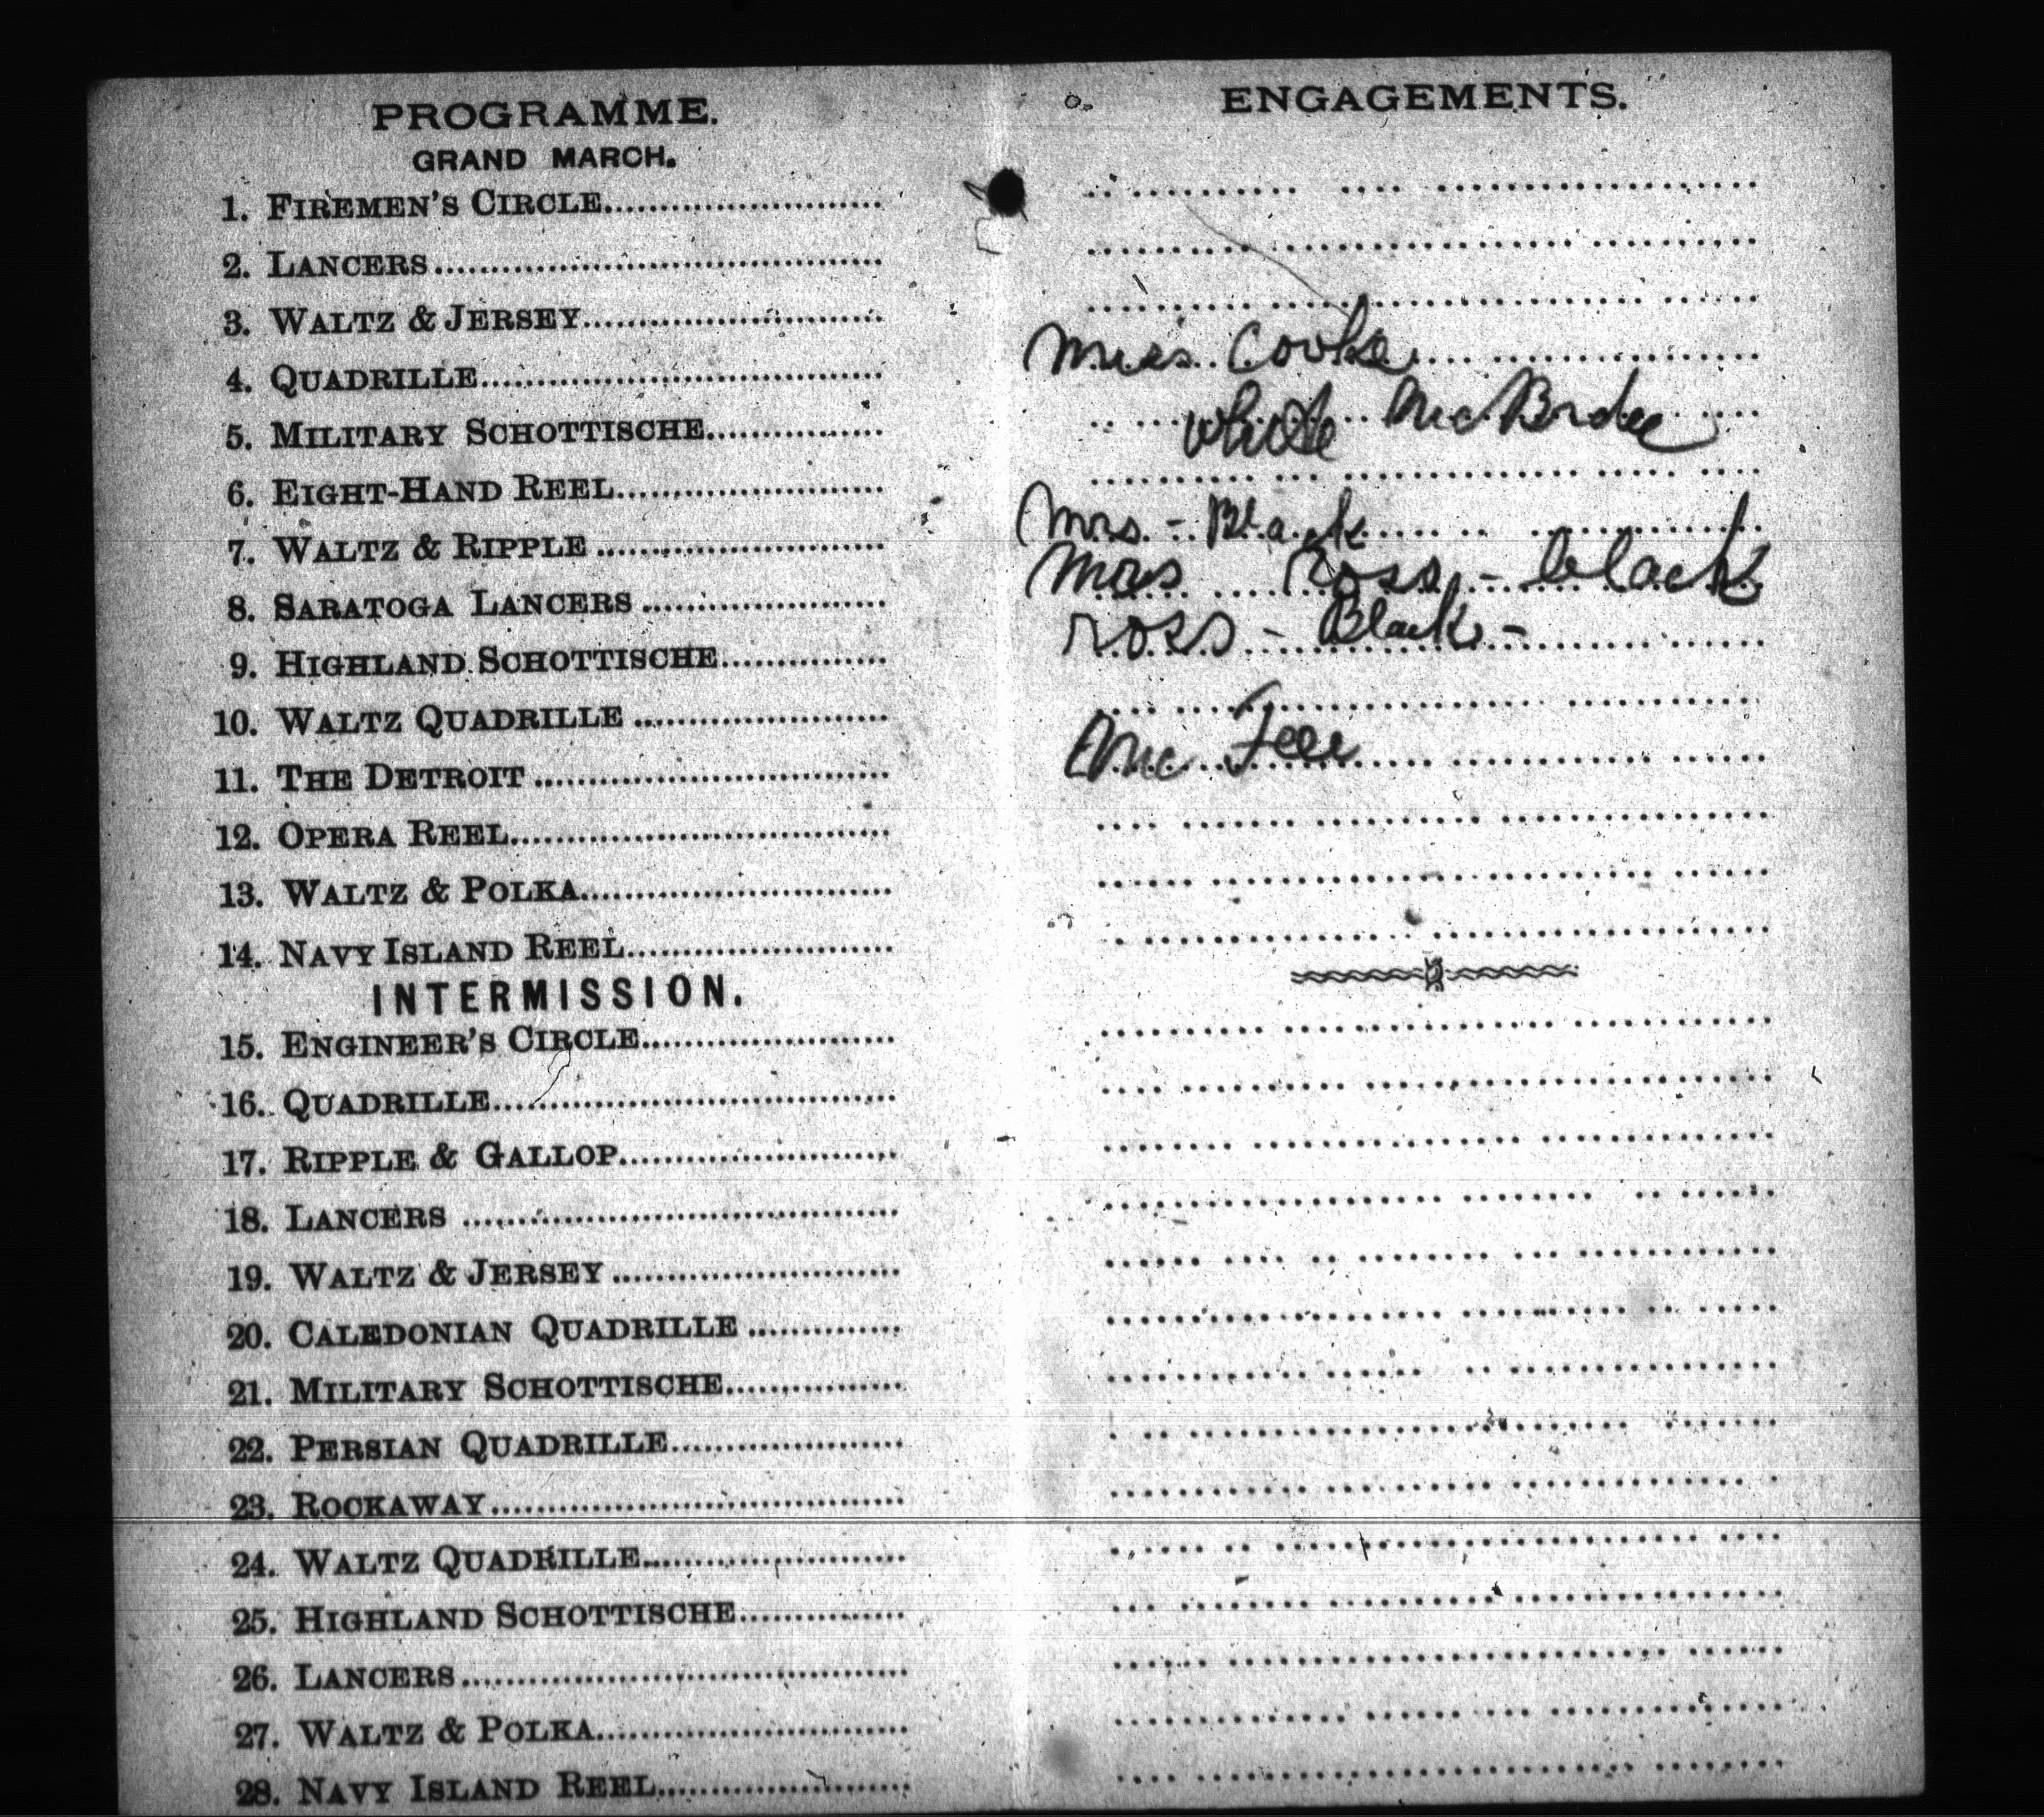 PROGRAMME.
GRAND MARCH.
1. FIREMEN'S CIRCLE
2. LANCERS
3. WALTZ & JERSEY
4. QUADRILLE
5. MILITARY SCHOTTISCHE
6. EIGHT-HAND REEL
7. WALTZ & RIPPLE
8. SARATOGA LANCERS
9. HIGHLAND SCHOTTISCHE
10. WALTZ QUADRILLE
11. THE DETROIT
12. OPERA REEL
13. WALTZ & POLKA
14. NAVY ISLAND REEL
INTERMISSION.
15. ENGINEER'S CIRCLE
16. QUADRILLE
17. RIPPLE & GALLOP
18. LANCERS
19. WALTZ & JERSEY
20. CALEDONIAN QUADRILLE
21. MILITARY SCHOTTISCHE
22. PERSIAN QUADRILLE
23. ROCKAWAY
24. WALTZ QUADRILLE
25. HIGHLAND SCHOTTISCHE
26. LANCERS
27. WALTZ & POLKA
28. NAVY ISLAND REEL
ENGAGEMENTS.
Cooke
White
Mrs. - Black
Mrs Ross - black
Ross - Black -
Mc Fee